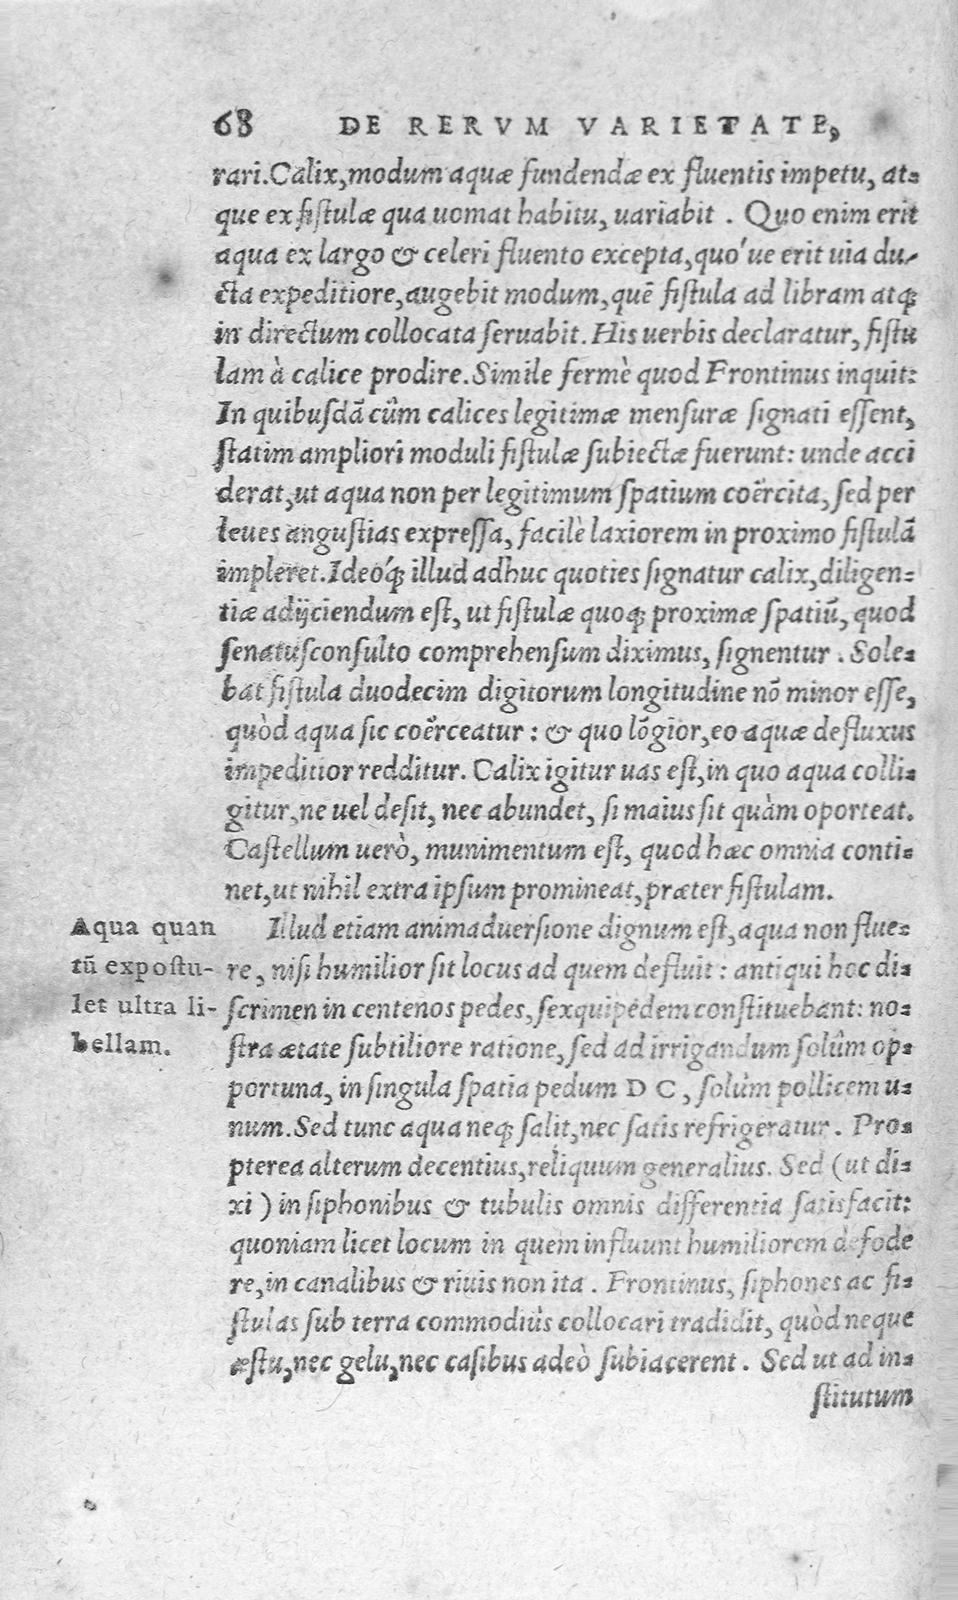 68 DE RERVM VARIETATE,
rari. Calix, modum aquæ fundendæ ex fluentis impetu, at=
que ex fiſtulæ qua uomat habitu, uariabit . Quo enim erit
aqua ex largo & celeri fluento excepta, quo'ue erit uia du-
cta expeditiore, augebit modum, quẽ fiſtula ad libram atq;
in directum collocata ſeruabit. His uerbis declaratur, fiſtu
lam à calice prodire. Simile fermè quod Frontinus inquit:
In quibuſdã cûm calices legitimæ menſuræ ſignati eſſent,
ſtatim ampliori moduli fiſtulæ ſubiectæ fuerunt: unde acci
derat, ut aqua non per legitimum ſpatium coërcita, ſed per
leues anguſtias expreſſa, facilè laxiorem in proximo fiſtulã
impleret. Ideóq; illud adhuc quoties ſignatur calix, diligen=
tiæ adijciendum eſt, ut fiſtulæ quoq; proximæ ſpatiũ, quod
ſenatuſconſulto comprehenſum diximus, ſignentur . Sole=
bat fiſtula duodecim digitorum longitudine nõ minor eſſe,
quòd aqua ſic coërceatur : & quo lõgior, eo aquæ defluxus
impeditior redditur. Calix igitur uas eſt, in quo aqua colli=
gitur, ne uel deſit, nec abundet, ſi maius ſit quàm oporteat.
Caſtellum uerò, munimentum eſt, quod hæc omnia conti=
net, ut nihil extra ipſum promineat, præter fiſtulam.
Aqua quan
tũ expoſtu-
let ultra li-
bellam.
Illud etiam animaduerſione dignum eſt, aqua non flue=
re, niſi humilior ſit locus ad quem defluit : antiqui hoc di=
ſcrimen in centenos pedes, ſexquipedem conſtituebant: no=
ſtra ætate ſubtiliore ratione, ſed ad irrigandum ſolûm op=
portuna, in ſingula ſpatia pedum D C, ſolùm pollicem u=
num. Sed tunc aqua neq; ſalit, nec ſatis refrigeratur . Pro=
pterea alterum decentius, reliquum generalius. Sed (ut di=
xi ) in ſiphonibus & tubulis omnis differentia ſatisfacit:
quoniam licet locum in quem influunt humiliorem defode
re, in canalibus & riuis non ita . Frontinus, ſiphones ac fi=
ſtulas ſub terra commodiùs collocari tradidit, quòd neque
æſtu, nec gelu, nec caſibus adeò ſubiacerent . Sed ut ad in=
ſtitutum